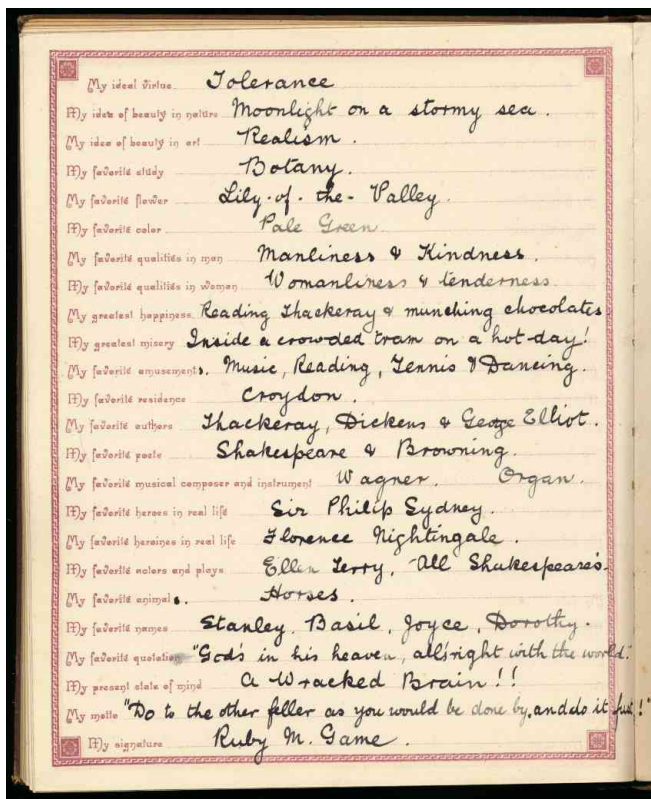 My ideal virtue Tolerance
My idea of beauty in nature Moonlight on a stormy sea.
My idea of beauty in art Realism.
My favorite study Botany.
My favorite flower Lily-of-the-Valley.
My favorite color Pale Green
My favorite qualities in man Manliness & Kindness.
My favorite qualities in woman Womanliness & tenderness
My greatest happiness Reading Thackeray & munching chocolates
My greatest misery Inside a crowded tram on a hot-day!
My favorite amusements. Music, Reading, Tennis & Dancing.
My favorite residence Croydon.
My favorite authors Thackeray, Dickens & George Elliot.
My favorite poets Shakespeare & Browning.
My favorite musical composer and instrument Wagner. Organ.
My favorite heroes in real life Sir Philip Sydney.
My favorite heroines in real life Florence Nightingale.
My favorite actors and plays Ellen Terry, -All Shakespeare's-
My favorite animals. Horses.
My favorite names Stanley, Basil, Joyce, Dorothy.
My favorite quotation "God's in his heaven, all's right with the world."
My present state of mind A Wracked Brain!!
My motto "Do to the other feller as you would be done by, and do it fust!"
My signature Ruby M. Game.